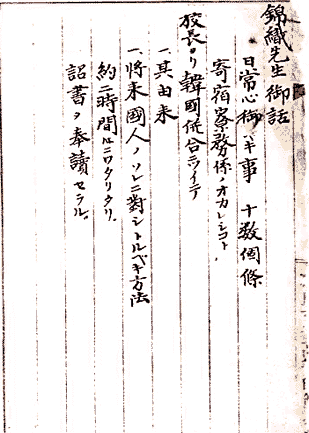 錦織先生御話
日常心得ベキ事 十数個條
寄宿寮務係ノオカレシコト、
校長ヨリ韓國併合ニツイテ
一、其由来
一、將来國人ノソレニ對シトルベキ方法
約二時間ニワタリタリ。
詔書ヲ奉讀セラル。